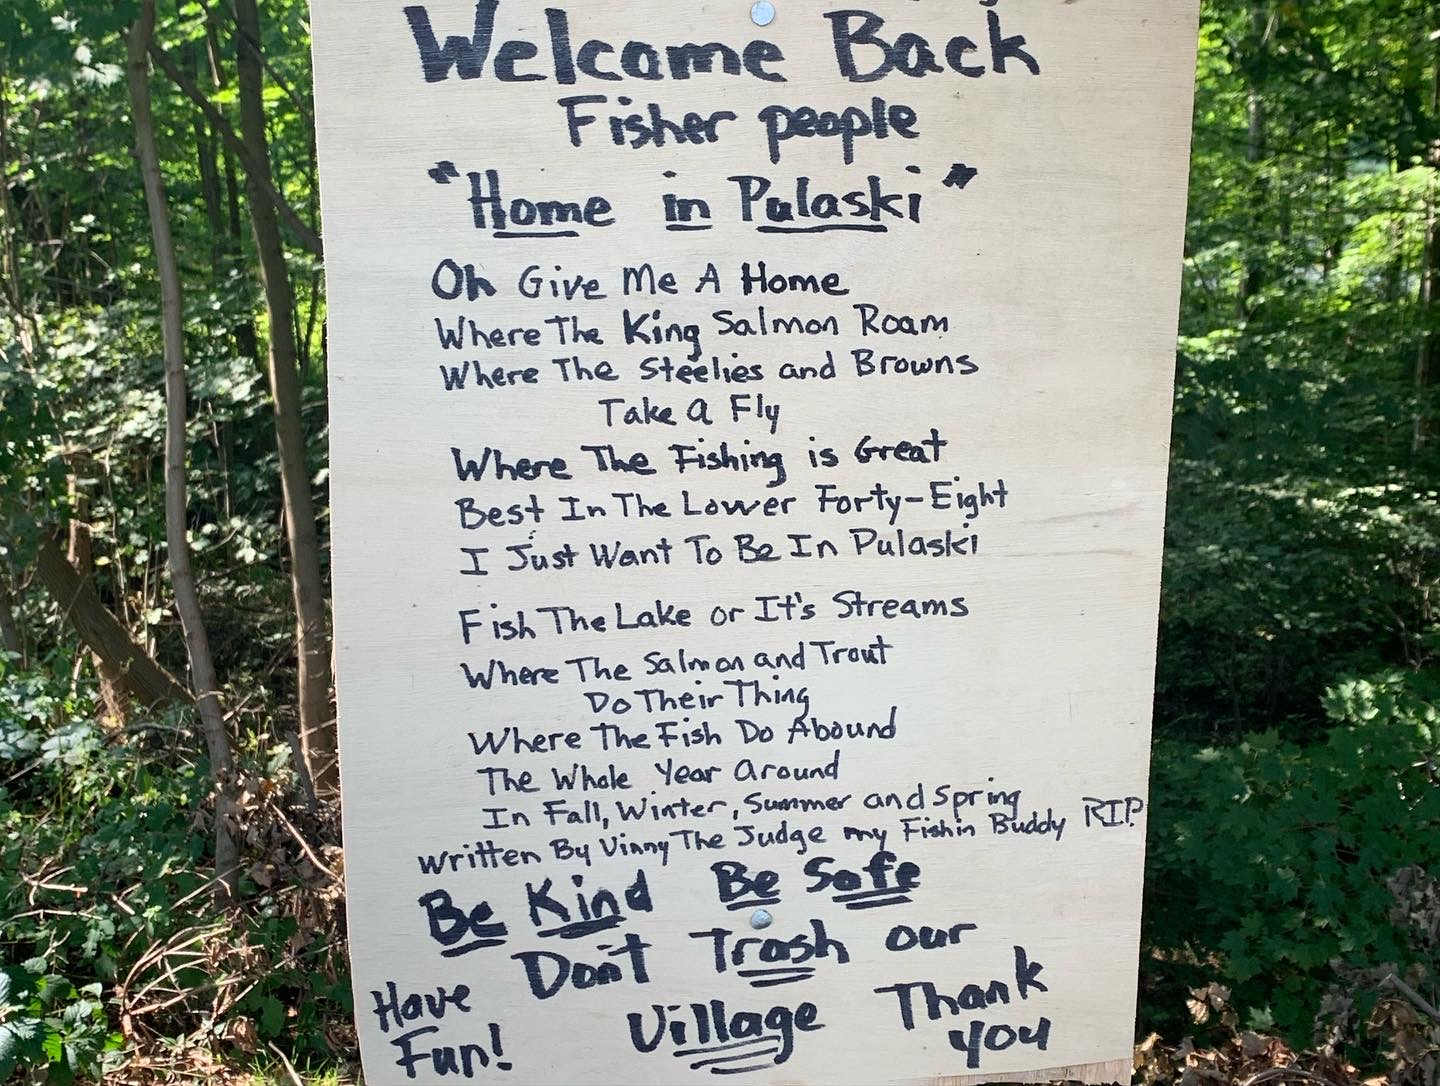 Welcome Back
Fisher people
"Home in Pulaski"
Oh Give Me A Home
Where The King Salmon Roam
Where The Steelies and Browns
Take a Fly
Where The Fishing is Great
Best In The Lower Forty-Eight
I Just Want To Be In Pulaski
Fish The Lake or It's Streams
Where The Salmon and Trout
Do Their Thing
Where The Fish Do Abound
The Whole Year Around
In Fall, Winter, Summer and Spring
Written By Vinny The Judge my Fishin Buddy RIP
Be Kind Be Safe
Don't Trash our
Village
Have
Fun!
Thank
you